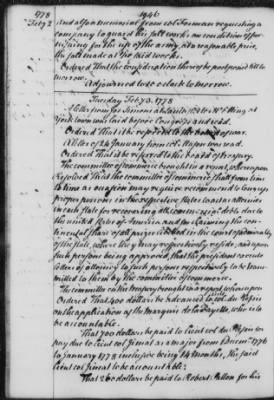 1778 1946
Feby 2 And also a memorial from col Forman requesting a
company to guard the salt works on condition of
for the use of the army, at a reasonable price,
the salt made at the said works.
Ordered That the consideration thereof be postponed till to
morrow.
Adjourned to 10 o'Clock to Morrow.
Tuesday Feby 3. 1778
A letter from
York town was laid before Congress and read.
Ordered that it be referred to the board of war.
A letter of 24 January from was read.
Ordered that it be referred to the board of treasury.
The committee of commerce brought in a report, whereupon
Resolved That the committee of commerce, that from time
to time as occasion may require recommend to Congress
proper persons in the respective states to act as attornies
in each state for recovering all the monies debts due to
the united States of America, and for claiming the con-
tinental share of all prizes in the court of admiralty
of the state, where they may respectively reside, and upon
such persons being approved, that the president execute
letters of attorney to such persons respectively to be trans-
mitted to them by the committee of commerce.
The committee on the treasury brought in a report, whereupon
Ordered That 400 dollars be advanced to
on the application of the Marquis de la Fayette, who is to
be accountable.
That 700 dollars be paid to lieut col for
pay due to lieut col as a major from Decem 1776
to January 1778 inclusive being 14 months, the said
lieut col to be accountable:
That 260 dollars be paid to Robert Patton for his